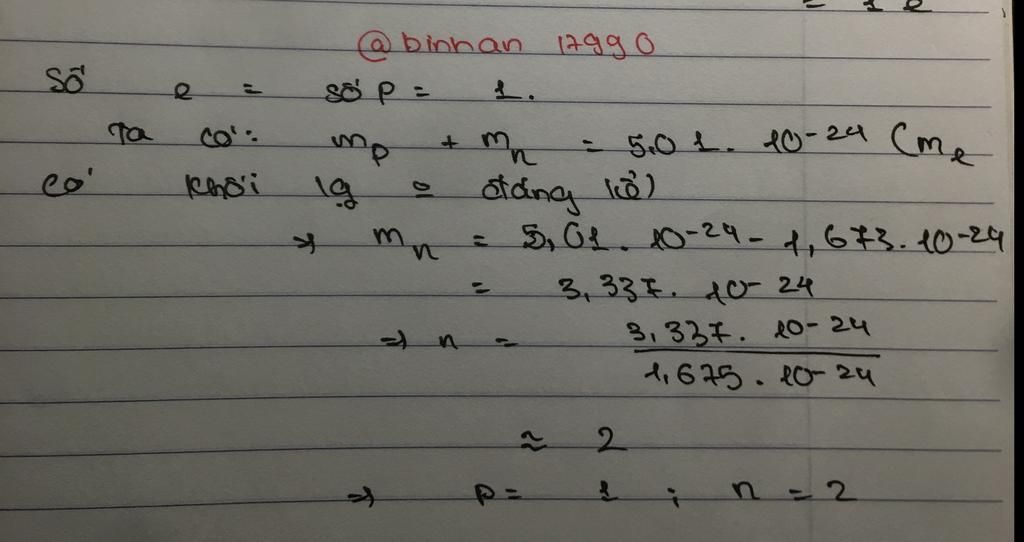 = 1 e
@binhan 17990
Số e = số p = 1.
Ta có: mp + mn = 5,01. 10-24 (me
có khối lg o đáng kể)
=> mn = 5,01. 10-24 - 1,673. 10-24
= 3,337. 10-24
=> n = 3,337. 10-24
1,675. 10-24
≈ 2
=> p = 1 ; n = 2